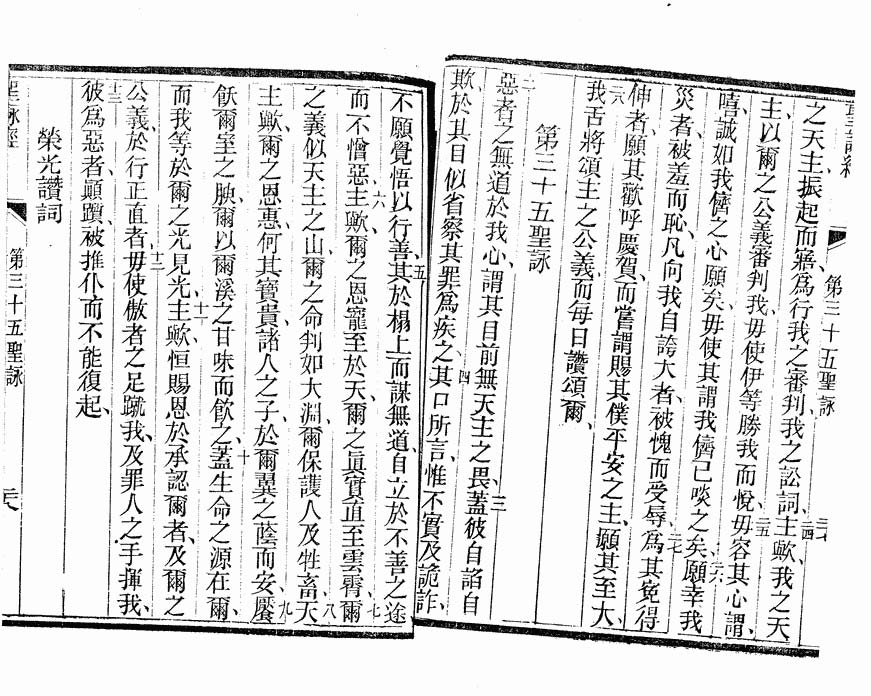 聖詠經 第三十五聖詠
之天主、振起而寤、爲行我之審判、我之訟詞、二四主歟、我之天
主、以爾之公義審判我、毋使伊等勝我而悅、二五毋容其心謂、
嘻、誠如我儕之心願矣、毋使其謂我儕已啖之矣、二六願幸我
災者、被羞而恥、凡向我自誇大者、被愧而受辱、二七爲其冤得
伸者、願其歡呼慶賀、而嘗謂賜其僕平安之主、願其至大、
二八我舌將頌主之公義、而每日讚頌爾、
第三十五聖詠
二惡者之無道於我心、謂其目前無天主之畏、三蓋彼自諂自
欺於其目、似省察其罪爲疾之、四其口所言、惟不實及詭詐、
不願覺悟以行善、五其於榻上而謀無道、自立於不善之途
而不憎惡、六主歟、爾之恩寵至於天、爾之眞實直至雲霄、七爾
之義似天主之山、爾之命判如大淵、爾保護人及牲畜、八天
主歟、爾之恩惠何其寶貴、諸人之子於爾翼之蔭而安、九饜
飫爾室之腴、爾以爾溪之甘味而飲之、十蓋生命之源在爾、
而我等於爾之光見光、十一主歟、恒賜恩於承認爾者、及爾之
公義於行正直者、十二毋使傲者之足蹴我、及罪人之手揮我、
十三彼爲惡者、顚躓、被推仆而不能復起、
榮光讚詞
聖詠經 第三十五聖詠